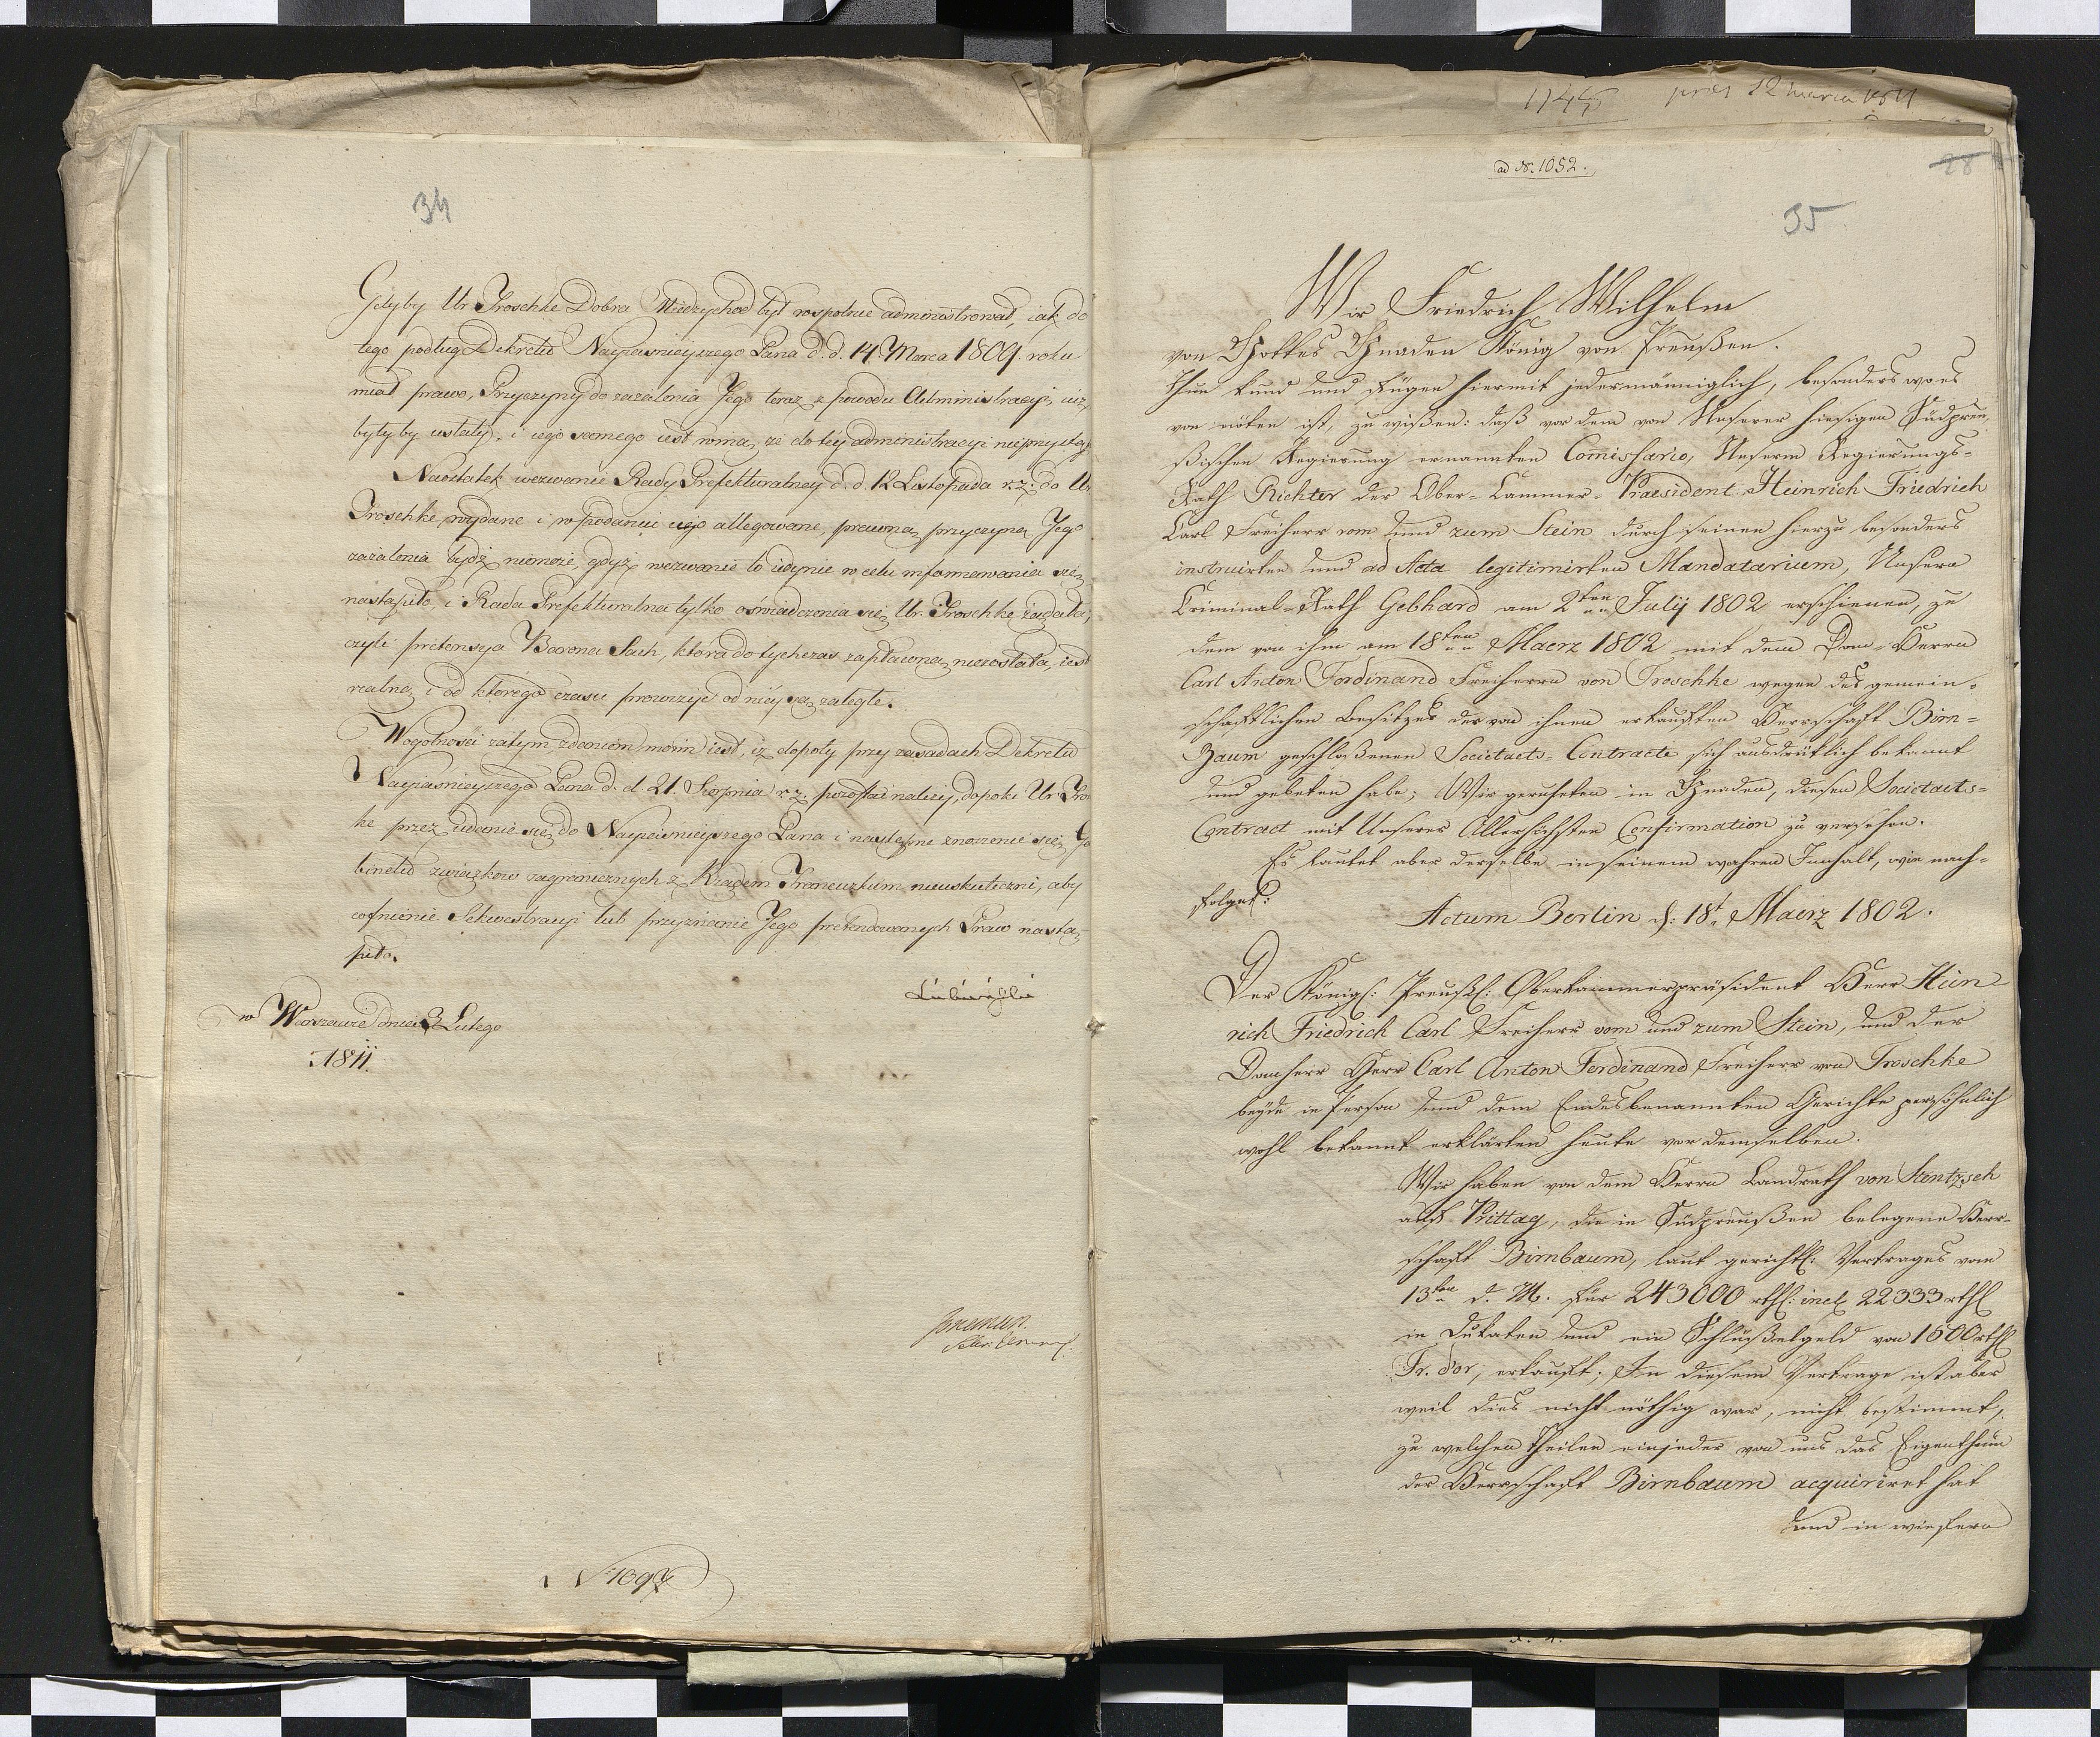 34
Gdyby Ur. Troschke Dobra Miedzychod był wspolnie administrował, iak do
tego podług Dekretu Nayiasnieyszego Pana d. d. 14 Marca 1809 roku
miał prawo, Przyczyny do zażalenia Jego teraz z powodu Administracyi, iuż
byłyby ustały, i iego samego iest wina, że do tey administracyi nieprzystą
Naostatek wezwanie Rady Prefekturalney d. d. 12 Listopada r. z. do Ur
Troschke wydane i w podaniu iego allegowane, prawną przyczyną Jego
zażalenia bydź niemoże, gdyż wezwanie to iedynie w celu informowania się
nastąpiło i Rada Prefekturalna tylko oświadczenia się Ur. Troschke żądała,
czyli pretensya Barona Sack, która dotychczas zapłaconą niezostała, iest
realną i od ktorego czasu prowizye od niéy są zaległe.
Wogolności zatym zdaniem moim iest, iż dopoty przy zasadach Dekretu
Nayiasnieyszego Pana d. d. 21. Sierpnia r. z. pozostać należy, dopoki Ur. Tro
ke przez udanie się do Nayiasnieyszego Pana i nastąpne znoszenie się Ga
binetu zwiąskow zagranicznych z Rządem Francuzkim nieuskuteczni, aby
cofnienie Sekwestracyi lub przyznanie Jego pretendowanych Praw nastą
piło.
Łubieński
w Warszawie dnia 3 Lutego
1811.
N 1097
1745 pras 12 marca 1811
ad Nr. 1052.
28
35
Wir Friedrich Wilhelm
von Gottes Gnaden König von Preußen.
Thun kund und fügen hiermit jedermänniglich, besonders wo es
von nöten ist, zu wißen: daß vor dem von Unserer hiesigen Südpreu
ßischen Regierung ernannten Commissario, Unserm Regierungs-
Rath Richter der Ober-Cammer-Praesident Heinrich Friedrich
Carl Freiherr vom und zum Stein durch seinen hierzu besonders
instruirten und ad Acta legitimirten Mandatarium, Unsern
Criminal-Rath Gebhard am 2ten July 1802 erschienen, zu
dem von ihm am 18ten Maerz 1802 mit dem Dom-Herrn
Carl Anton Ferdinand Freiherrn von Troschke wegen des gemein-
schaftlichen Besitzes der von ihnen erkauften Herrschaft Birn-
baum geschloßenen Societaets-Contracte sich ausdrücklich bekannt
und gebeten habe; Wir geruheten in Gnaden, diesen Societaets-
Contract mit Unserer Allerhöchsten Confirmation zu versehen.
Es lautet aber derselbe in seinem wahren Innhalt, wie nach-
folget:
Actum Berlin d: 18t Maerz 1802.
Der Königl: Preußl: Oberkammerpräsident Herr Hein
rich Friedrich Carl Freiherr vom und zum Stein, und der
Domherr Herr Carl Anton Ferdinand Freiherr von Troschke
beyde in Person und dem Endesbenannten Gerichte persöhnlich
wohl bekannt erklärten heute vor demselben.
Wir haben von dem Herrn Landrath von Stentzsch
auf Prittag, die in Südpreußen belegene Herr-
schaft Birnbaum, laut gerichtl: Vertrages vom
13ten d. M. für 243000 rthl: incl 22333 rthl
in Dukaten und ein Schlüßelgeld von 1500 rthl
Fr. d'or, erkauft; In diesem Vertrage ist aber
weil dies nicht nöthig war, nicht bestimmt,
zu welchen Theilen ein jeder von uns das Eigenthum
der Herrschaft Birnbaum acquiriret hat
und in wiefern